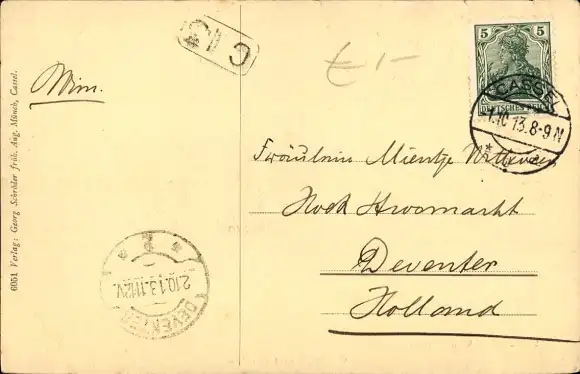 6051 Verlag: Georg Schröder früh. Aug. Münch, Cassel.
Mim.
5 5
DEUTSCHES REICH
CASSEL
1.10.13.8-9N
Fräulein Mientje
Hoek Stroomarkt
Deventer
Holland
2.10.13.11-12V.
DEVENTER